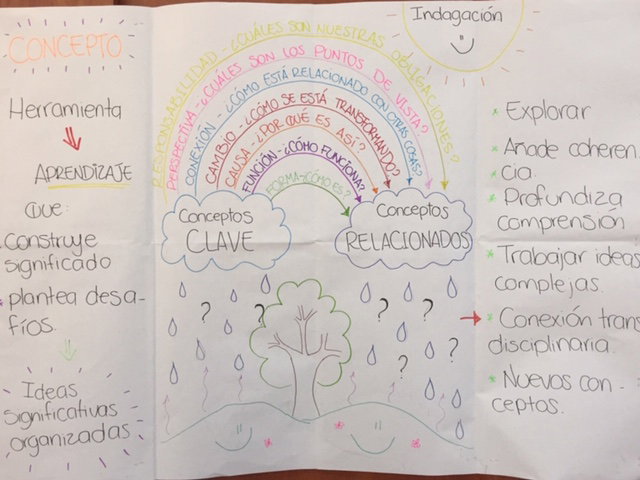 CONCEPTO
Herramienta
APRENDIZAJE
QUE:
construye
significado
plantea desa-
fíos.
Ideas
significativas
organizadas
Indagación
RESPONSABILIDAD - ¿CUÁLES SON NUESTRAS OBLIGACIONES?
PERSPECTIVA - ¿CUÁLES SON LOS PUNTOS DE VISTA?
CONEXIÓN - ¿CÓMO ESTÁ RELACIONADO CON OTRAS COSAS?
CAMBIO - ¿CÓMO SE ESTÁ TRANSFORMANDO?
CAUSA - ¿POR QUÉ ES ASÍ?
FUNCIÓN - ¿CÓMO FUNCIONA?
FORMA - ¿CÓMO ES?
Conceptos
CLAVE
Conceptos
RELACIONADOS
? ? ? ? ? ?
* Explorar
* Añade coheren
cia.
* Profundiza
comprensión
* Trabajar ideas
complejas.
→ Conexión trans
disciplinaria.
* Nuevos con -
ceptos.